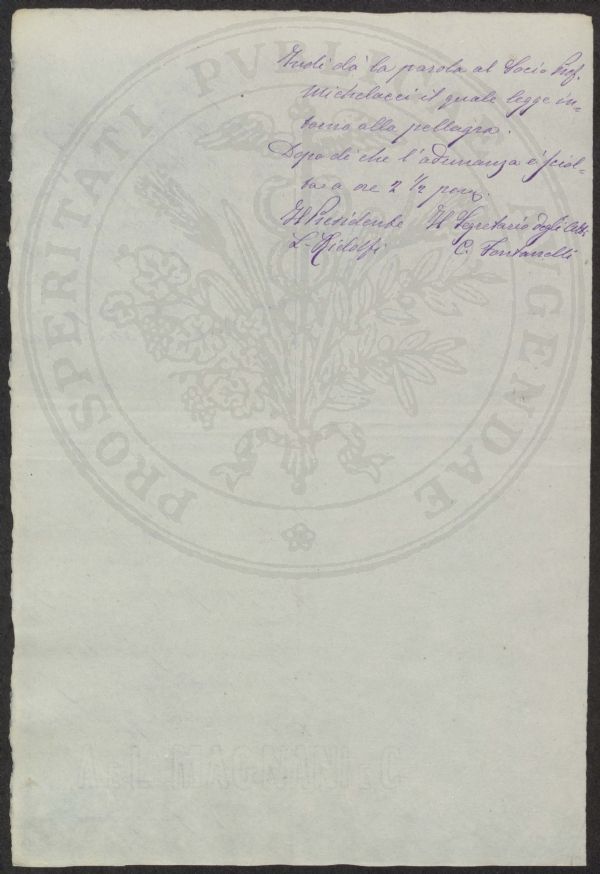 Indi dà la parola al Socio Prof.
Michelacci il quale legge in-
torno alla pellagra.
Dopo di che l'adunanza è sciol-
ta a ore 2 ½ pom.
Il Presidente Il Segretario degli Atti
L. Ridolfi C. Fontanelli
PROSPERITATI PVBLICAE AVGENDAE